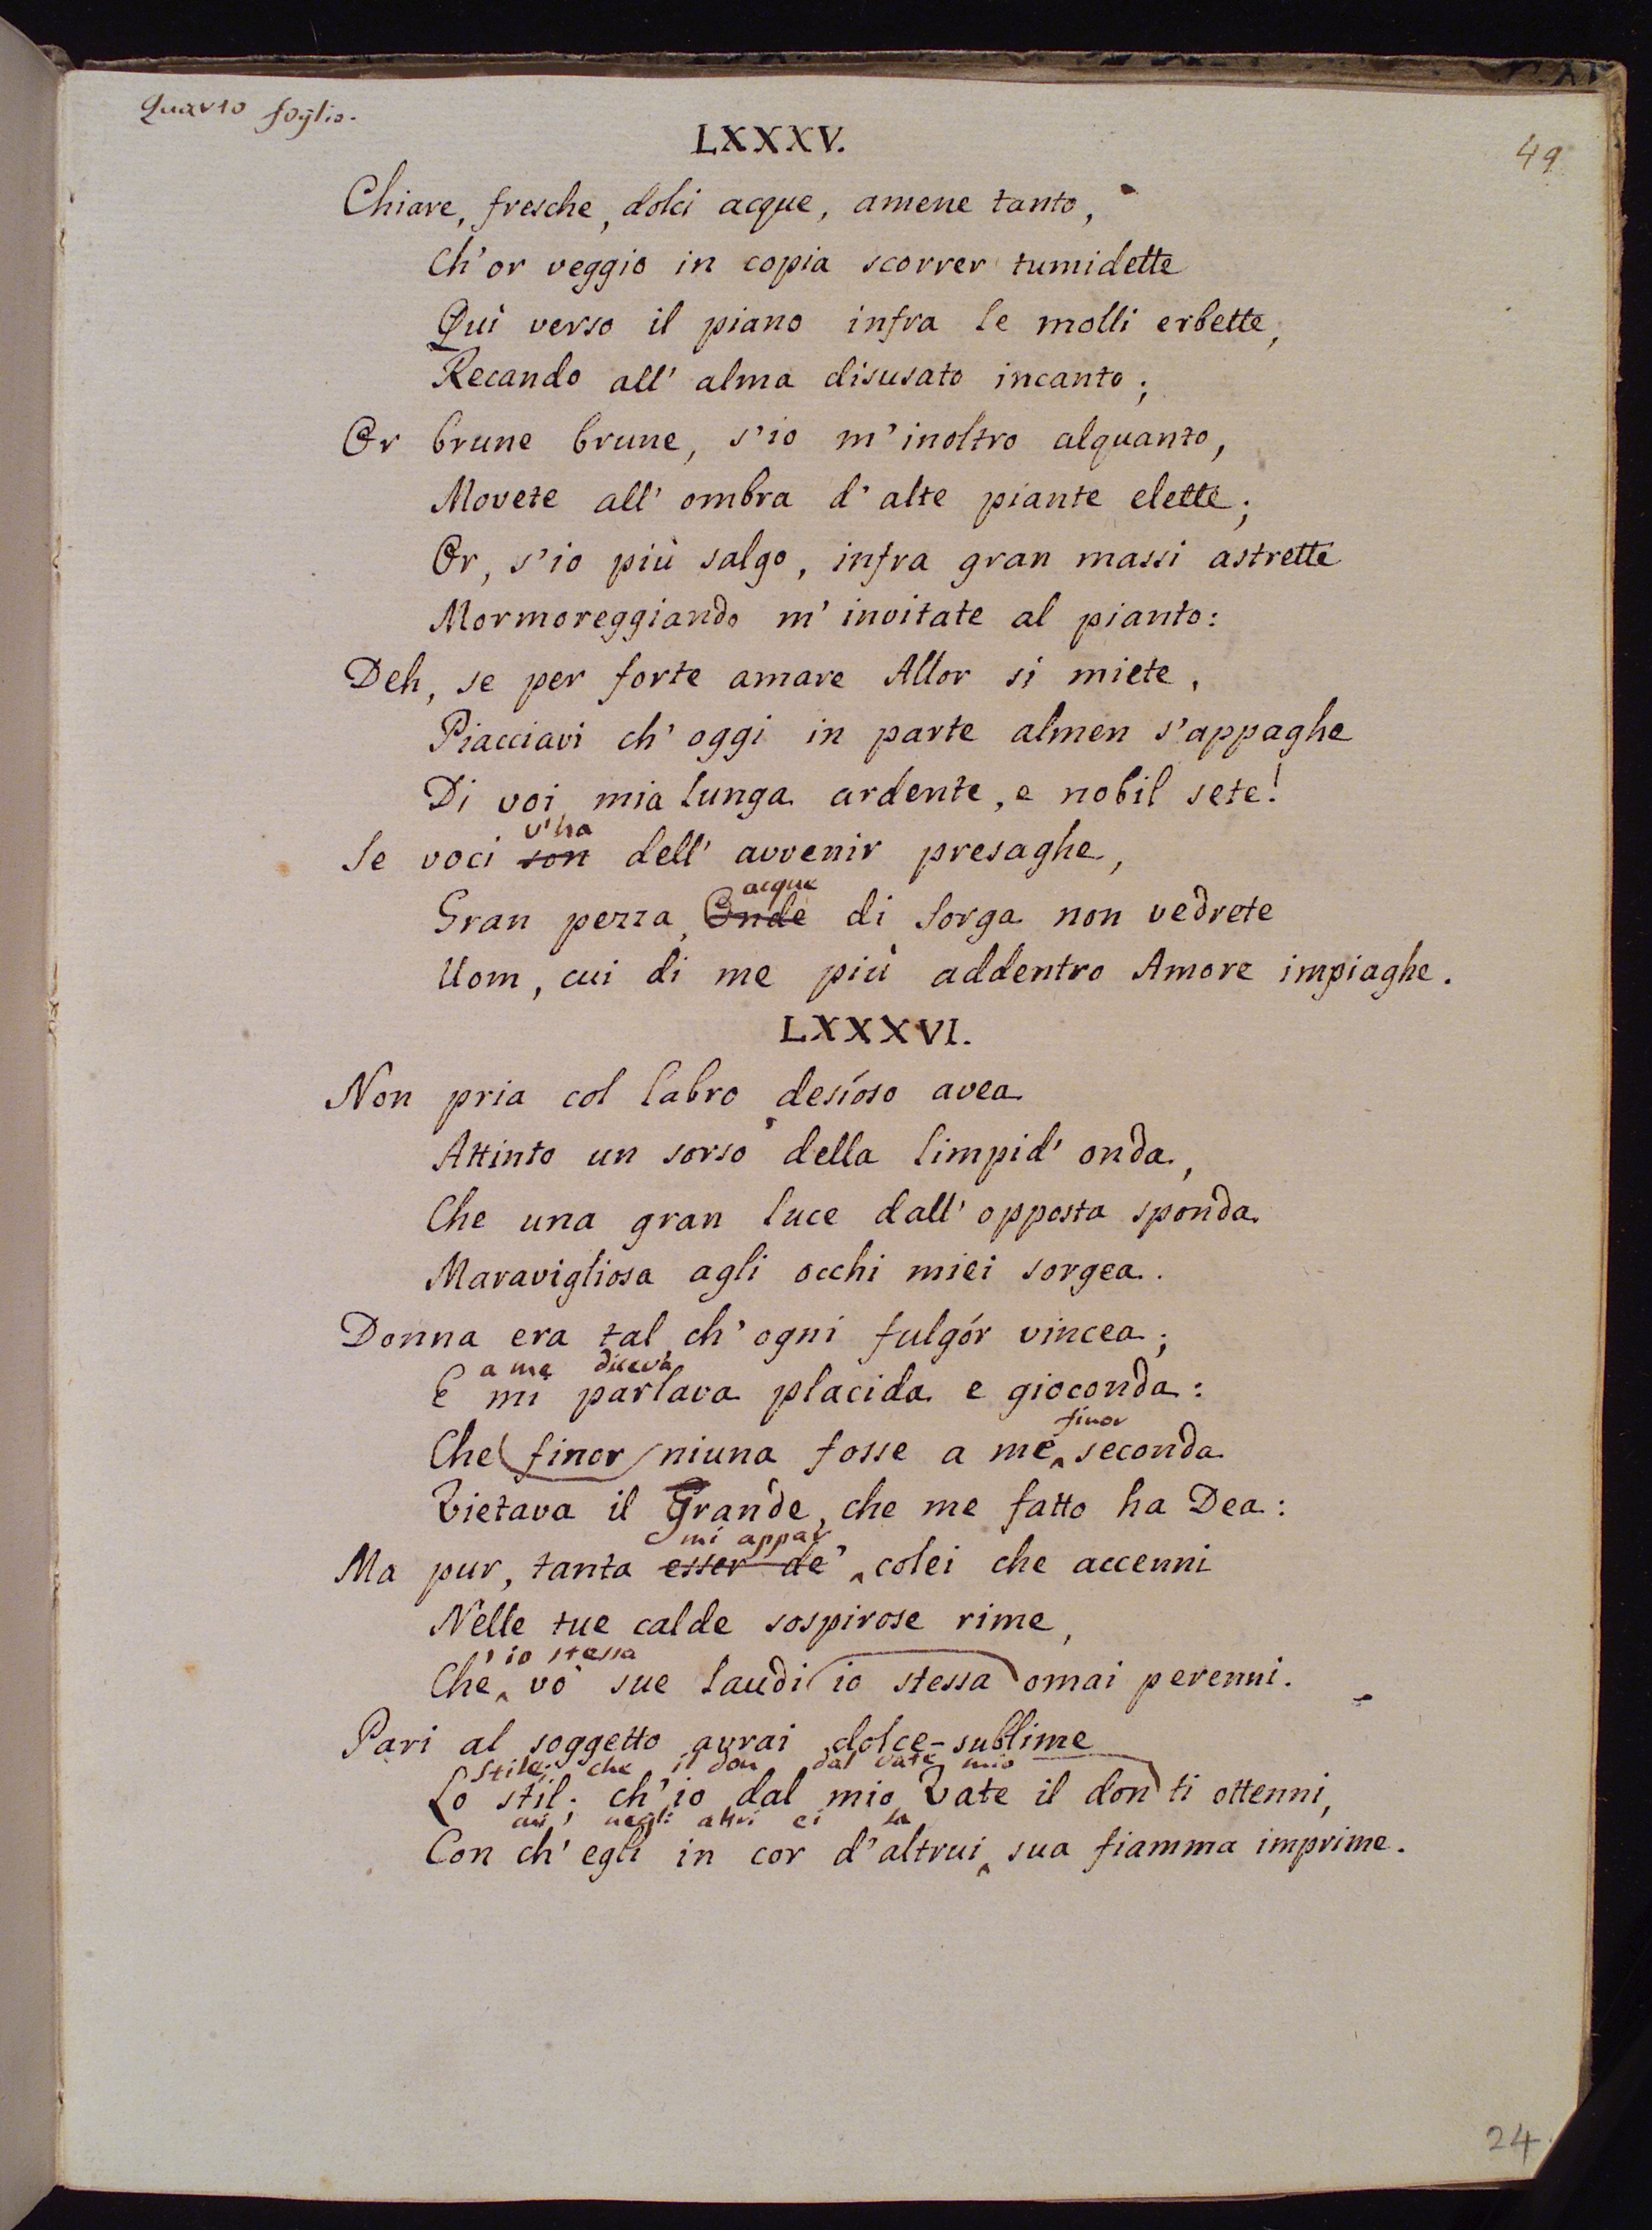 Quarto foglio.
49
LXXXV.
Chiare, fresche, dolci acque, amene tanto,
Ch'or veggio in copia scorrer tumidette
Quì verso il piano infra le molli erbette,
Recando all' alma disusato incanto;
Or brune brune, s'io m'inoltro alquanto,
Movete all' ombra d'alte piante elette;
Or, s'io più salgo, infra gran massi astrette
Mormoreggiando m' invitate al pianto:
Deh, se per forte amare Allor si miete,
Piacciavi ch' oggi in parte almen s'appaghe
Di voi mia lunga ardente, e nobil sete!
v'ha
Se voci son dell' avvenir presaghe,
acque
Gran pezza, Onde di Sorga non vedrete
Uom, cui di me più addentro Amore impiaghe.
LXXXVI.
Non pria col labro desïoso avea
Attinto un sorso della limpid' onda,
Che una gran luce dall' opposta sponda
Maravigliosa agli occhi miei sorgea.
Donna era tal, ch' ogni fulgór vincea;
a me diceva
E mi parlava placida e gioconda:
finor
Che finor niuna fosse a me seconda
Vietava il Grande, che me fatto ha Dea:
mi appar
Ma pur, tanta esser de' colei che accenni
Nelle tue calde sospirose rime,
io stessa
Che vo' sue laudi io stessa omai perenni.
Pari al soggetto avrai dolce-sublime
Stile; che il don dal vate mio
Lo stil; ch'io dal mio Vate il don ti ottenni,
cui, negli altri ei la
Con ch' egli in cor d'altrui sua fiamma imprime.
24